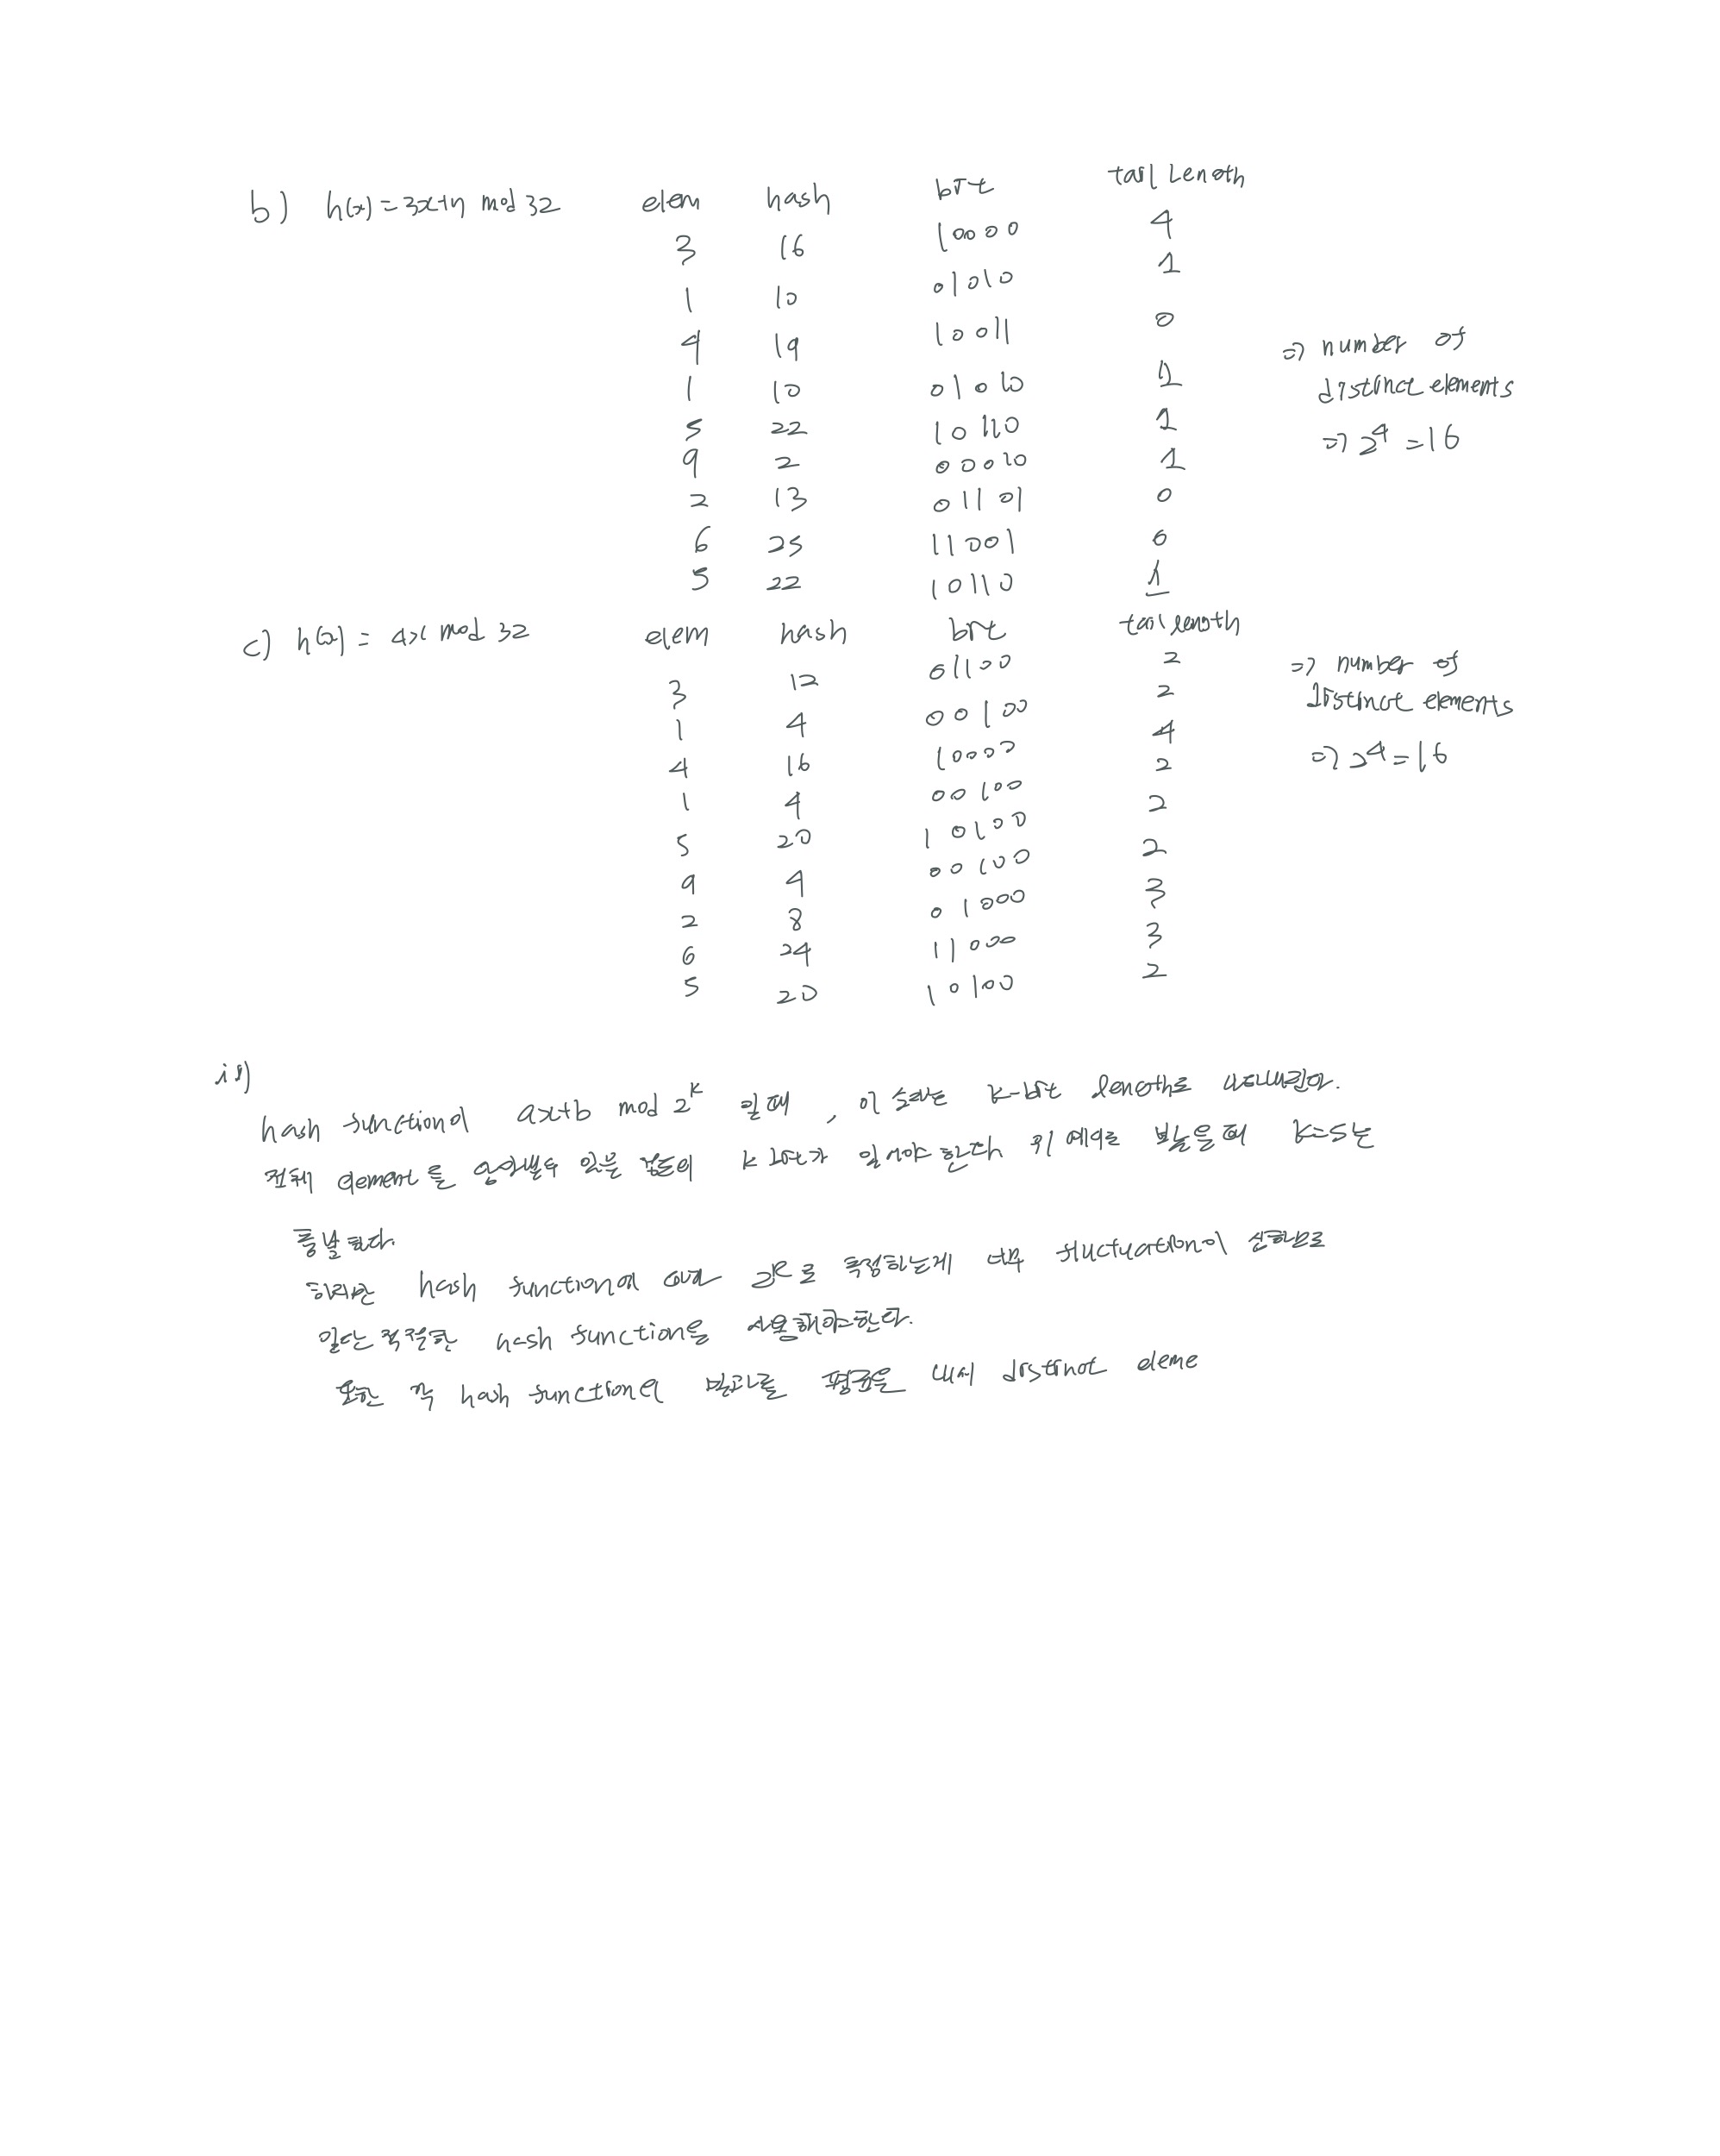 b) h(x) = 3x+7 mod 32 elem hash bit tail length
3 16 10000 4
1 10 01010 1
4 19 10011 0
1 10 01010 1
5 22 10110 1
9 2 00010 1
2 13 01101 0
6 25 11001 0
5 22 10110 1
⇒ number of
distinct elements
⇒ 2^4 = 16
c) h(x) = 4x mod 32 elem hash bit tail length
3 12 01100 2
1 4 00100 2
4 16 10000 4
1 4 00100 2
5 20 10100 2
9 4 00100 2
2 8 01000 3
6 24 11000 3
5 20 10100 2
⇒ number of
distinct elements
⇒ 2^4 = 16
ii)
hash function이 ax+b mod 2^k 일때, 이 숫자는 k-bit length로 나타내진다.
전체 element를 있을 정도의 k 있어야 한다 위 예제로 보았을때 k=5는
충분하다.
하지만 hash function에 따라 2^R로 측정하는게 너무 fluctuation이 심하므로
일단 적절한 hash function을 사용해야한다.
또한 각 hash function의 결과를 평균을 내서 distinct eleme